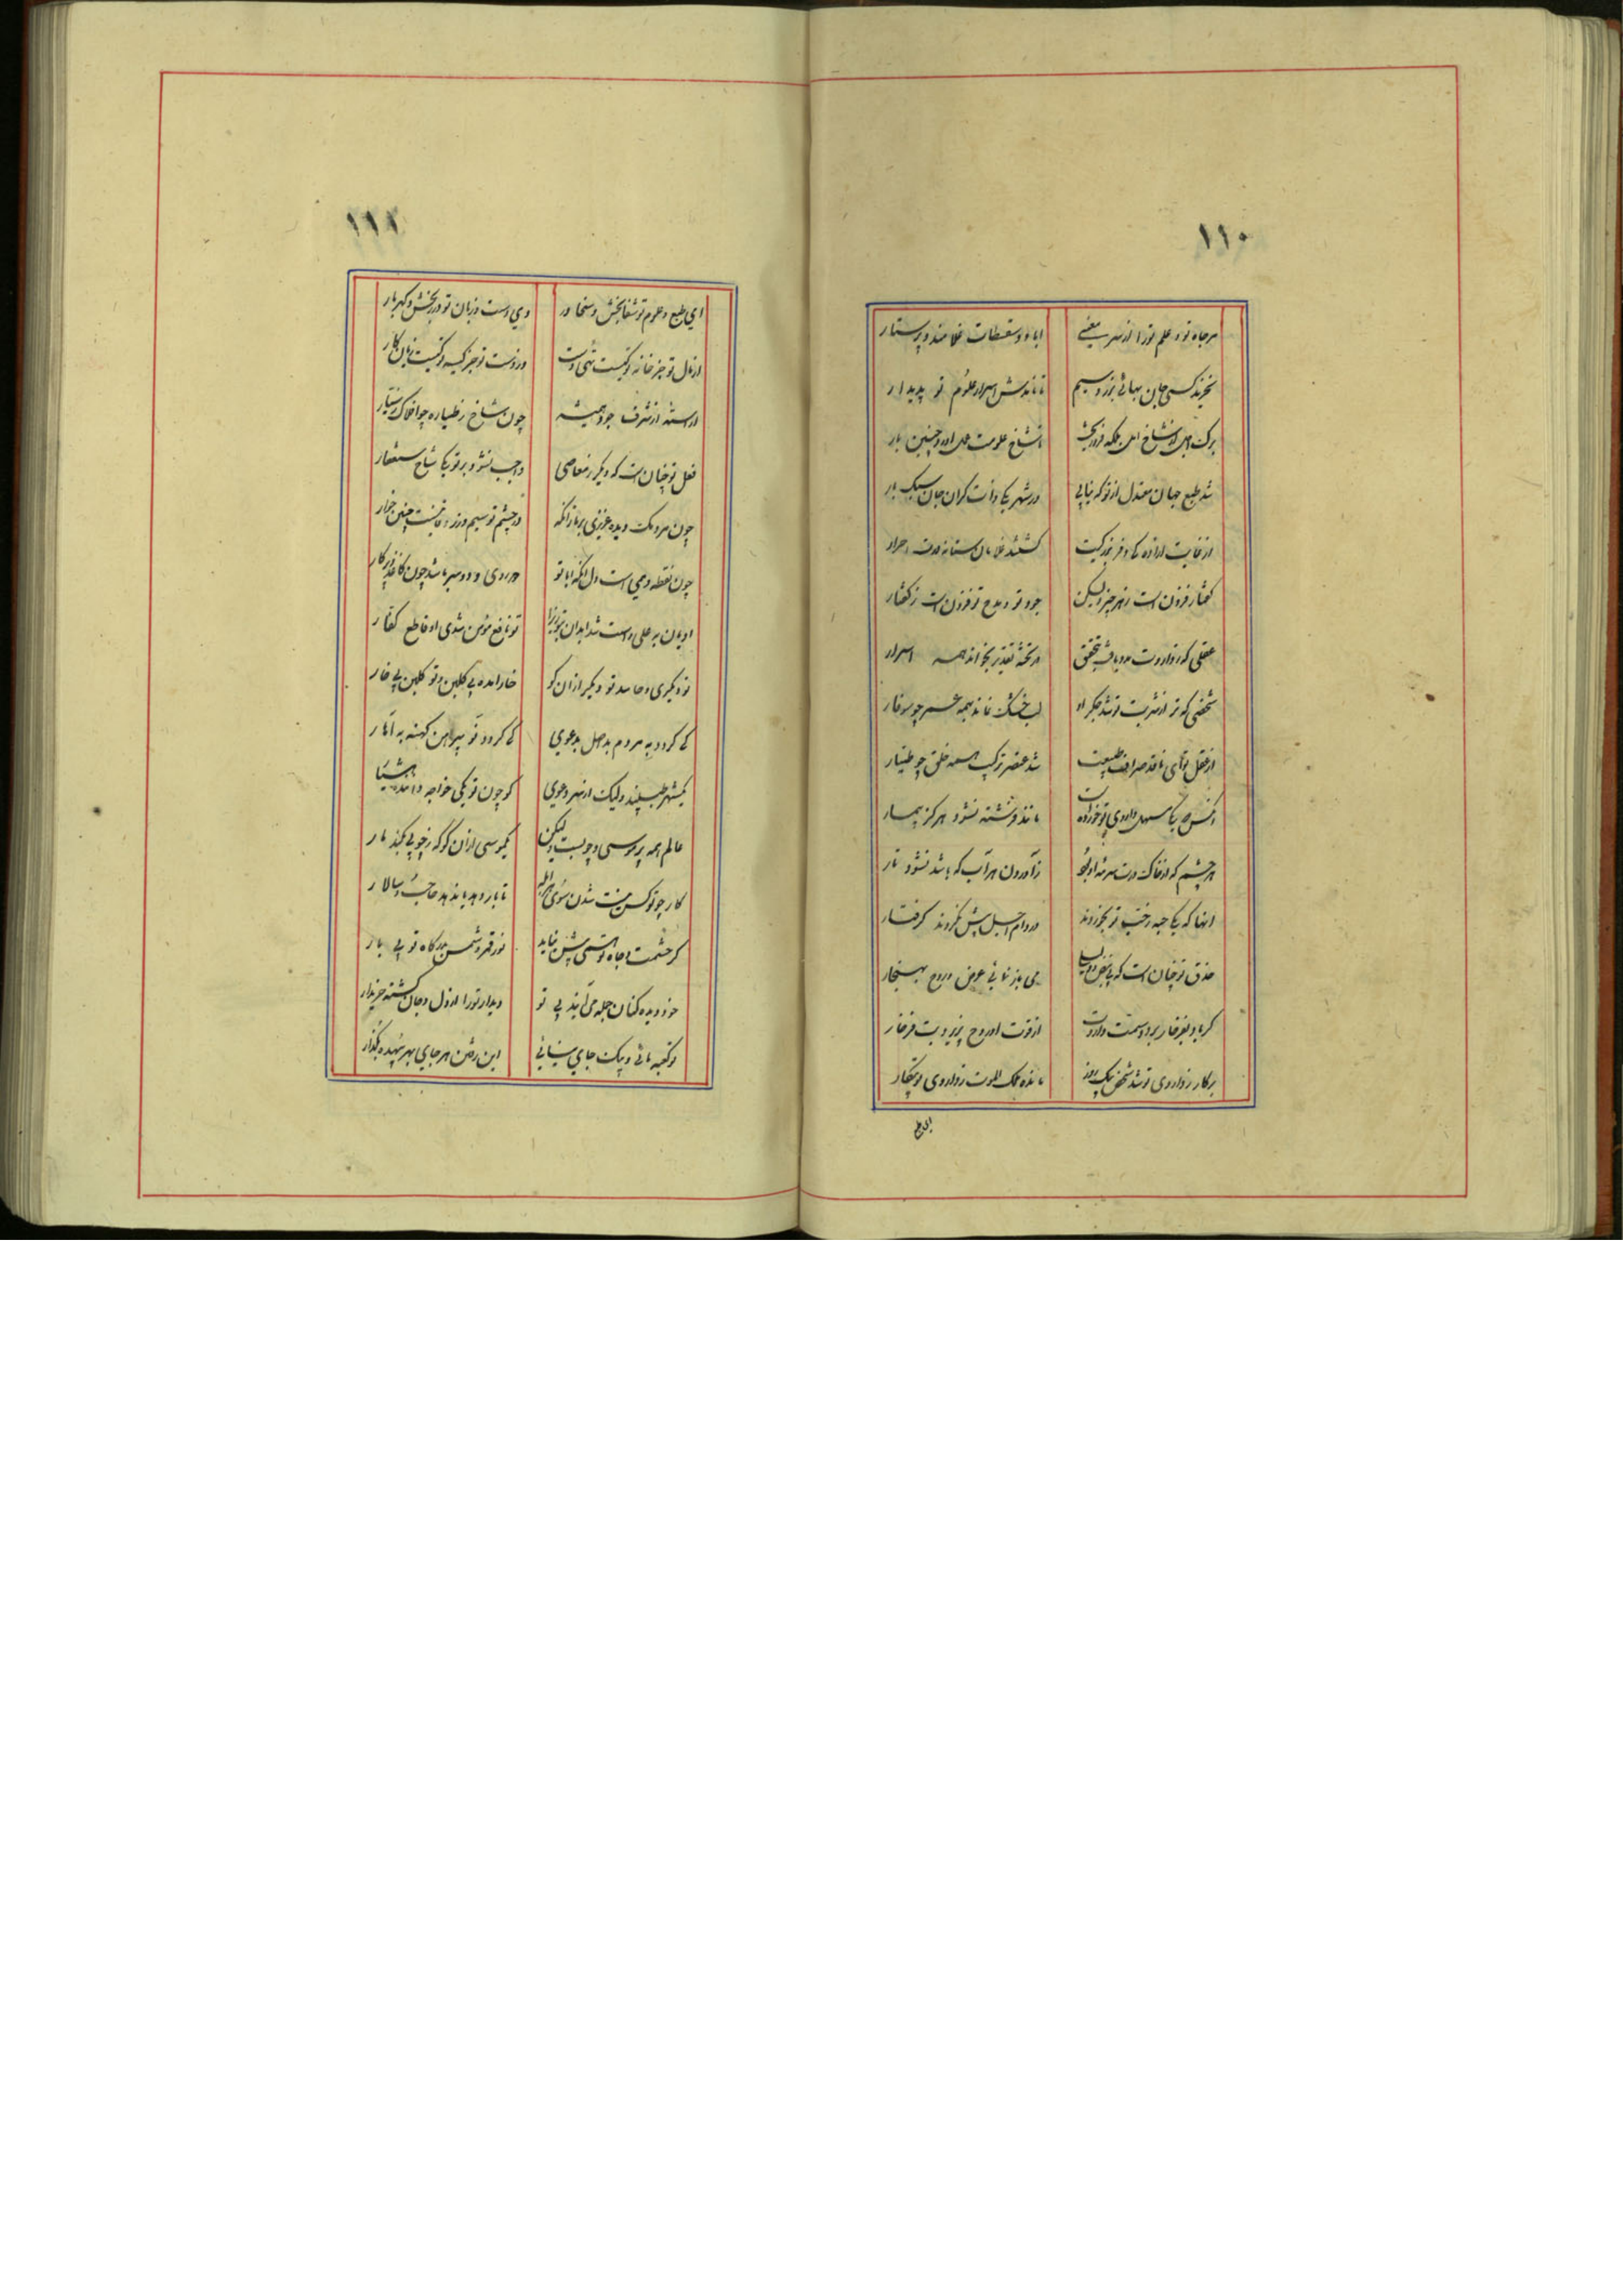 ۱۱۰
هر جاه تو و علم تو را از سر معنی اباء و سقطات غلامند و پرستار
نخرند کسی جان بهائی بزر و سیم تا نامدش اسرار علوم تو پدیدار
شد طبع جهان معتدل از تو که نیابی در شهر یکی ذات گران جان سبک بار
گشتند غلامان ستانه درت احرار
گفتار فزون است ز هر چیز ولیکن جود تو و مدح تو فزون است ز گفتار
عقلی که از داروت مدد یافت بتحقیق در تخته تقدیر بخواند همه اسرار
شخصی که تر از شربت تو شد جگر او لب خشک نماند بهمه عمر چو سوفار
از عقل تو ای ناقد صراف طبیعت شد عنصر ترکیب همه خلق چو طیار
مانند فرشته نشود هرگز بیمار
هر چشم که از خاک درت سرمه او بود زآوردن هر آب که باشد نشود تار
آنها که یکی حبه ز حب تو بخوردند در دام اجل پیش نگردند گرفتار
حذق تو چنان است که بی نبض و دلیلی می باز نمائی عرض روح بهنجار
گر باد بفرخار برد و سمت داروت از قوت او روح پذیرد بت فرخار
بر کار ز داروی تو شد شخص بیک روز مانده ملک الموت ز داروی تو بیکار
ای طبع
۱۱۱
ای طبع و علوم تو شفابخش و سخا ور وی دست و زبان تو درربخش و گهربار
از مال تو جز خانه تو کیست تهی دست وز دست تو جز کیسه تو کیست زیان کار
آراسته از شرف جود همیشه چون شاخ ز طیاره چو افلاک ز سیار
فعل تو چنان است که دیگر ز معاصی واجب نشود بر تو یکی شاخ ستغفار
چون مردمک دیده عزیزی بر ما زانکه در چشم تو سیم و زر ما نیست چنین خوار
چون نقطه وهمی است دل آنکه ابا تو دو روی و دو سر باشد چون کاغذ پرگار
تو نافع مؤمن شدی او قاطع کفار
تو دیگری و حاسد تو دیگر از آن کو خار آمده بی گلبن و تو گلبن بی خار
کی گردد به مردم بد اصل بدعوی کی گردد نو پیراهن کهنه به آهار
یک شهر طبیبند ولیک از سر دعوی کو چون تو یکی خواجه داننده هشیار
عالم همه پر موسی و چوب است ولیکن یک موسی از آن کو که ز چوبی بکند مار
کار چو تو کس نیست شدن سوی هر ابله تا بار دهد یا ندهد حاجب و سالار
گر حشمت و جاه تو همی پیش نیاید نور قمر و شمس بدرگاه تو بی بار
خود دیده کنان جمله می آیند پی تو دیدار تو را از دل و جان گشته خریدار
تو کعبه مائی و بیک جای بیاسای این رفتن هر جای بهر بیهده بگذار